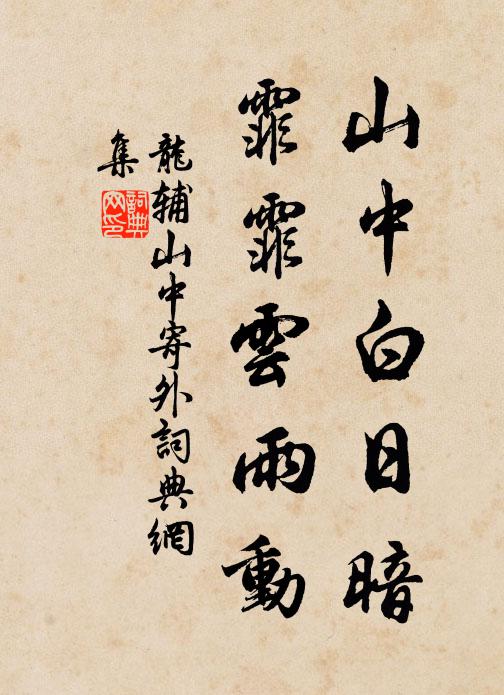 山中白日暗
霏霏雲雨動
龍輔山中寄外詞典網
集
詞典
网印